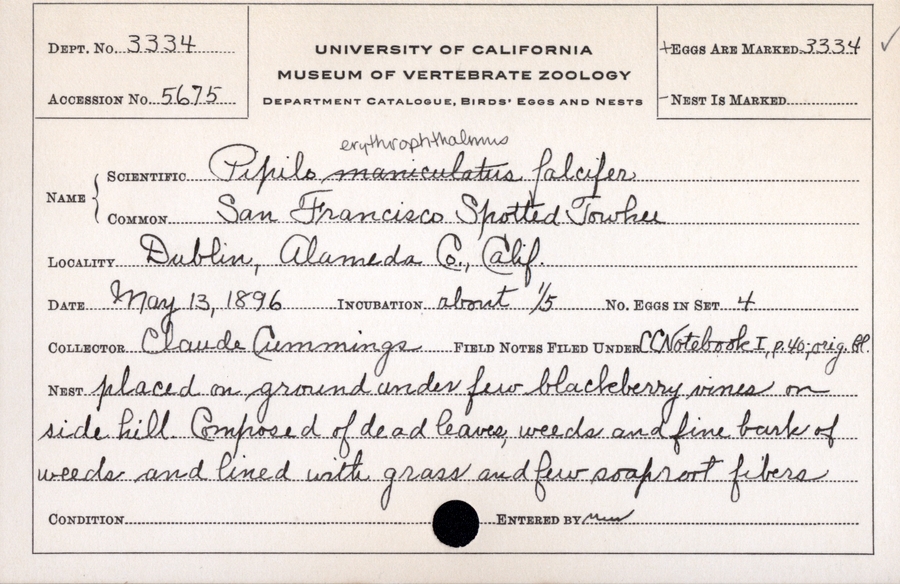 DEPT. No. 3334
ACCESSION No. 5675
UNIVERSITY OF CALIFORNIA
MUSEUM OF VERTEBRATE ZOOLOGY
DEPARTMENT CATALOGUE, BIRDS' EGGS AND NESTS
+EGGS ARE MARKED 3334 ✓
-NEST IS MARKED
erythrophthalmus
NAME { SCIENTIFIC Pipilo maniculatus falcifer
COMMON San Francisco Spotted Towhee
LOCALITY Dublin, Alameda Co., Calif.
DATE May 13, 1896 INCUBATION about 1/5 NO. EGGS IN SET 4
COLLECTOR Claude Cummings FIELD NOTES FILED UNDER CC Notebook I, p. 40; orig. Bl.
NEST placed on ground under few blackberry vines on
side hill. Composed of dead leaves, weeds and fine bark of
weeds and lined with grass and few soaproot fibers
CONDITION ENTERED BY